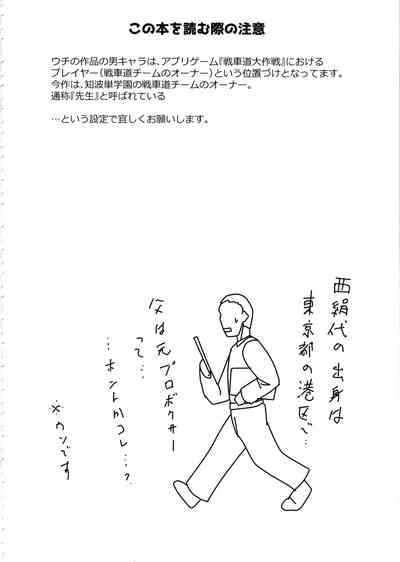 この本を読む際の注意
ウチの作品の男キャラは、アプリゲーム『戦車道大作戦』における
プレイヤー（戦車道チームのオーナー）という位置づけとなってます。
今作は、知波単学園の戦車道チームのオーナー。
通称『先生』と呼ばれている
…という設定で宜しくお願いします。
西絹代の出身は
東京都の港区で…
父は元プロボクサー
って…
…ホントかコレ…?
※ウソです